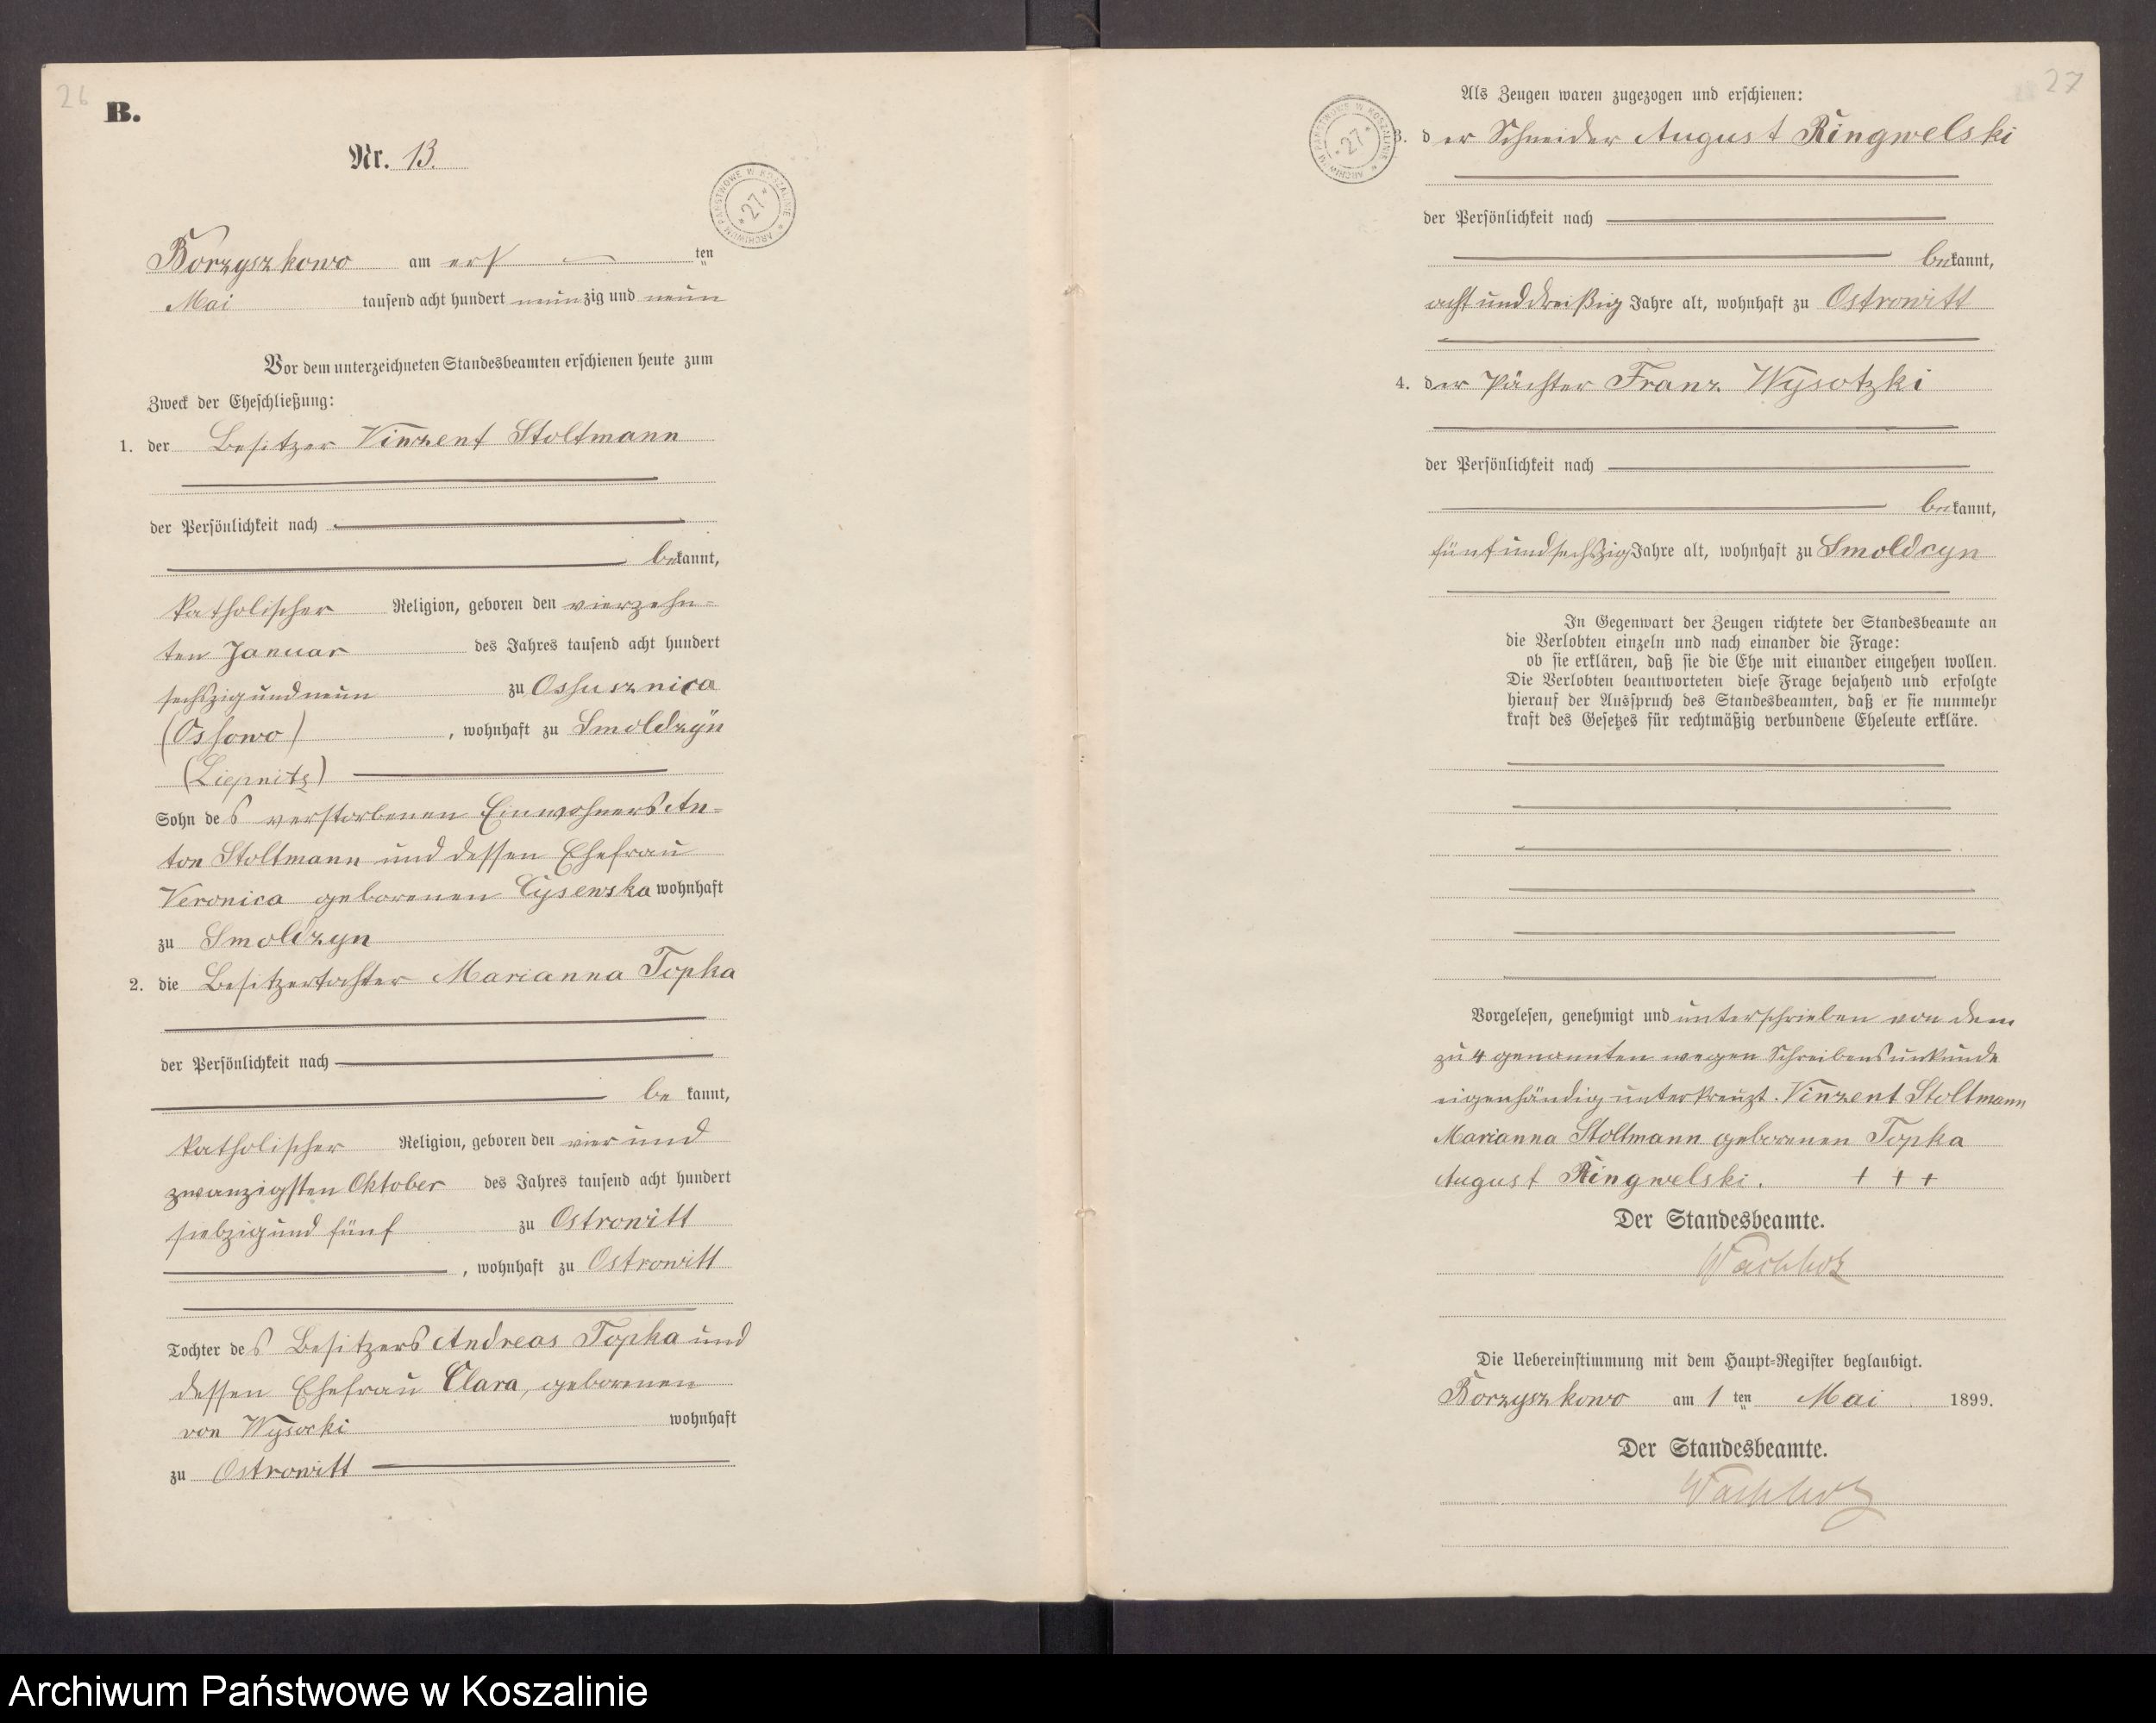 26
B.
Nr. 13.
ARCHIWUM PAŃSTWOWE W KOSZALINIE
* 27 *
Borzyszkowo am erst ten
Mai tausend acht hundert neunzig und neun
Vor dem unterzeichneten Standesbeamten erschienen heute zum
Zweck der Eheschließung:
1. der Besitzer Vinzent Stoltmann
der Persönlichkeit nach
bekannt,
katholischer Religion, geboren den vierzehn-
ten Januar des Jahres tausend acht hundert
sechszig und neun zu Ossusznica
(Ossowo), wohnhaft zu Smoldzyn
(Liepnitz)
Sohn des verstorbenen Einwohners An-
ton Stoltmann und dessen Ehefrau
Veronica geborenen Cysewska wohnhaft
zu Smoldzyn
2. die Besitzertochter Marianna Topka
der Persönlichkeit nach
bekannt,
katholischer Religion, geboren den vier und
zwanzigsten Oktober des Jahres tausend acht hundert
siebzig und fünf zu Ostrowitt
, wohnhaft zu Ostrowitt
Tochter des Besitzers Andreas Topka und
dessen Ehefrau Clara, geborenen
von Wysocki wohnhaft
zu Ostrowitt
27
Als Zeugen waren zugezogen und erschienen:
ARCHIWUM PAŃSTWOWE W KOSZALINIE
* 27 *
3. der Schneider August Ringwelski
der Persönlichkeit nach
bekannt,
acht und dreißig Jahre alt, wohnhaft zu Ostrowitt
4. der Pächter Franz Wysotzki
der Persönlichkeit nach
bekannt,
fünf und sechszig Jahre alt, wohnhaft zu Smoldcyn
In Gegenwart der Zeugen richtete der Standesbeamte an
die Verlobten einzeln und nach einander die Frage:
ob sie erklären, daß sie die Ehe mit einander eingehen wollen.
Die Verlobten beantworteten diese Frage bejahend und erfolgte
hierauf der Ausspruch des Standesbeamten, daß er sie nunmehr
kraft des Gesetzes für rechtmäßig verbundene Eheleute erkläre.
Vorgelesen, genehmigt und unterschrieben von dem
zu 4 genannten wegen Schreibensunkunde
eigenhändig unterkreuzt. Vinzent Stoltmann
Marianna Stoltmann geborenen Topka
August Ringwelski. + + +
Der Standesbeamte.
Wachholz
Die Uebereinstimmung mit dem Haupt-Register beglaubigt.
Borzyszkowo am 1 ten Mai 1899.
Der Standesbeamte.
Wachholz
Archiwum Państwowe w Koszalinie